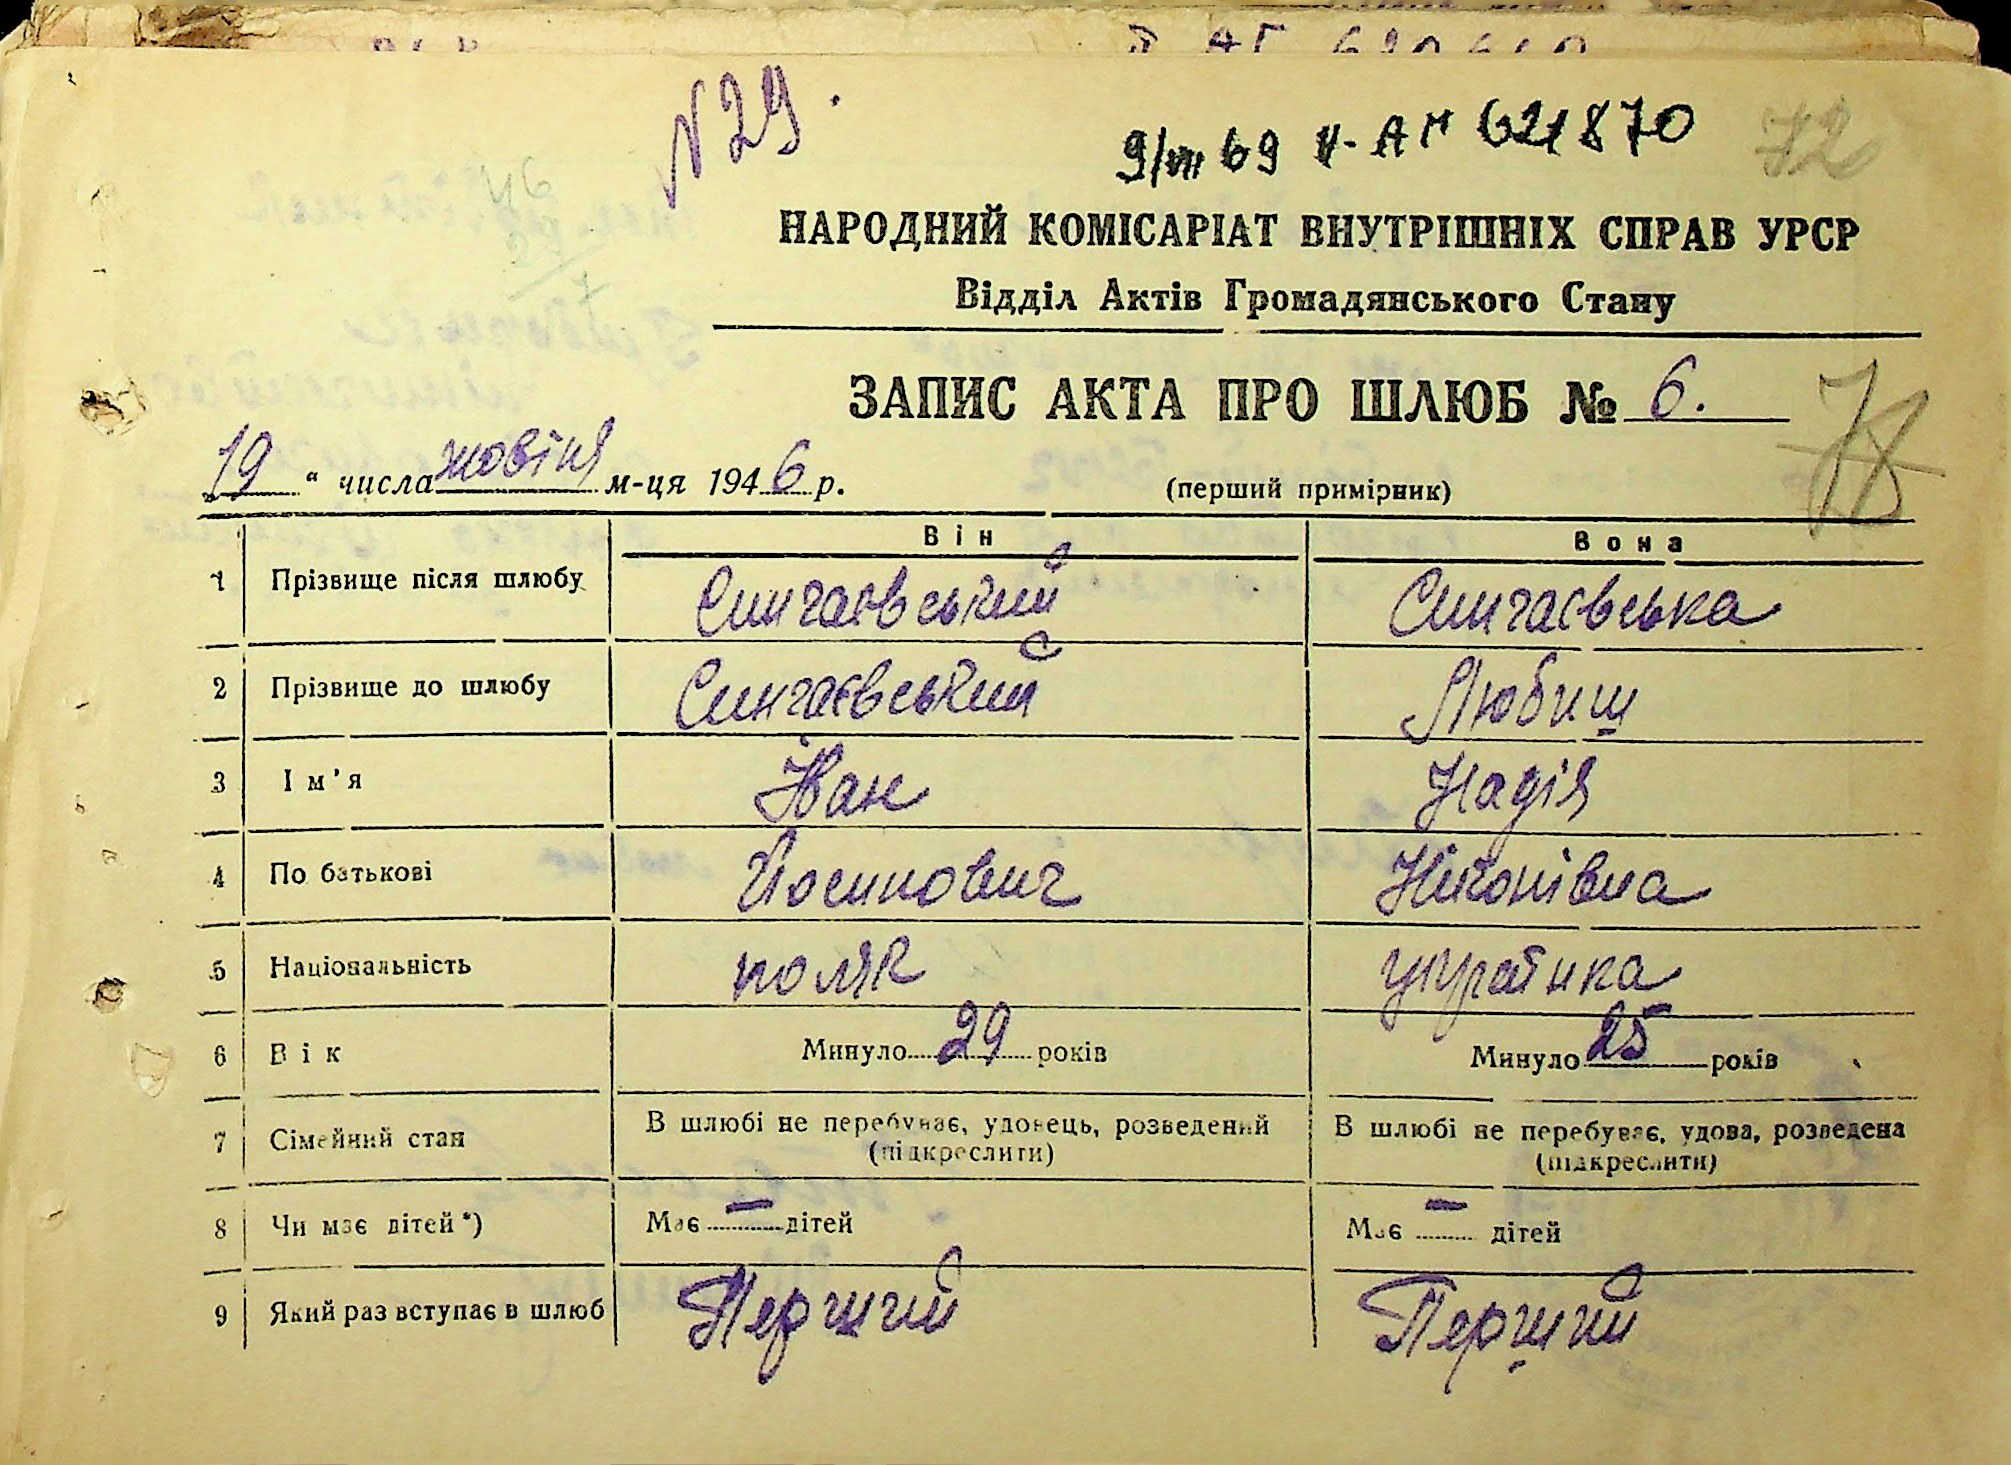 N 29.
9/VII 69 II-АП 621870
72
НАРОДНИЙ КОМІСАРІАТ ВНУТРІШНІХ СПРАВ УРСР
Відділ Актів Громадянського Стану
ЗАПИС АКТА ПРО ШЛЮБ № 6.
„19“ числа жовтня м-ця 1946 р.
(перший примірник)
Він Вона
1 Прізвище після шлюбу Сингаєвський Сингаєвська
2 Прізвище до шлюбу Сингаєвський Любиш
3 Ім’я Іван Надія
4 По батькові Йосипович Ніконівна
5 Національність поляк українка
6 Вік Минуло 29 років Минуло 25 років
7 Сімейний стан В шлюбі не перебуває, удовець, розведений (підкреслити) В шлюбі не перебуває, удова, розведена (підкреслити)
8 Чи має дітей*) Має — дітей Має — дітей
9 Який раз вступає в шлюб Перший Перший